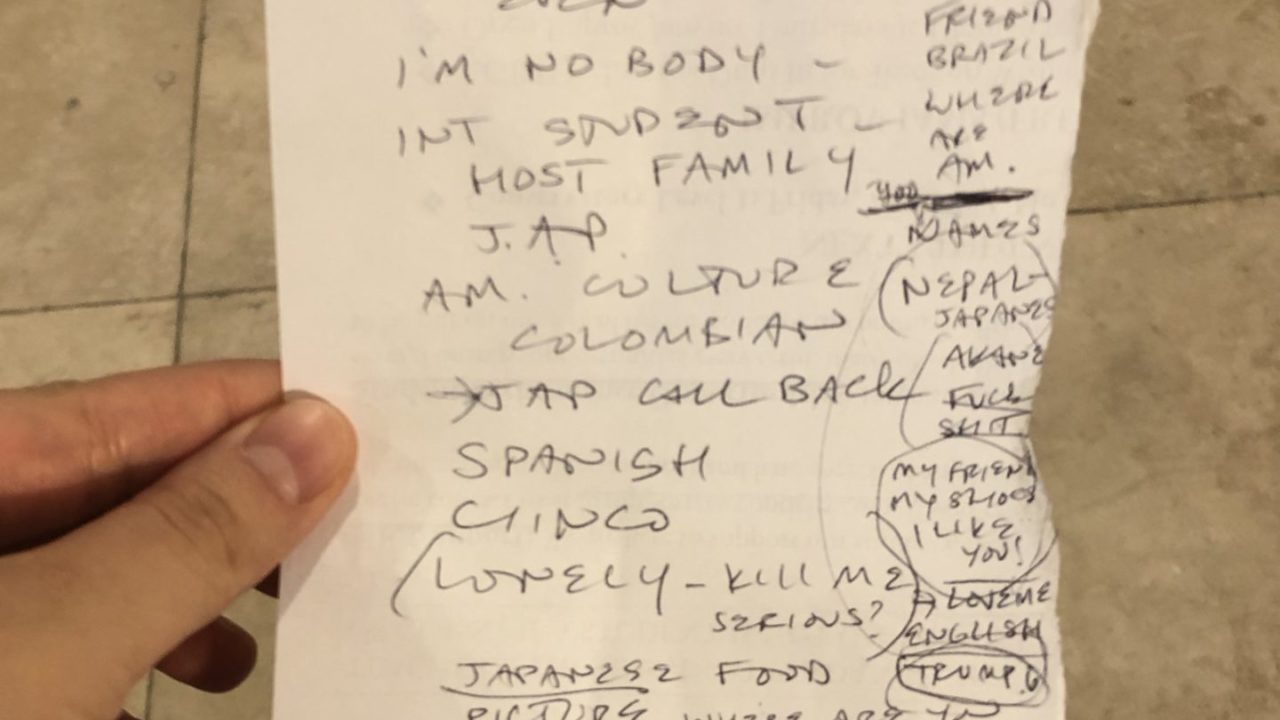 I'M NO BODY -
INT STUDENT -
HOST FAMILY
J.A.P.
AM. CULTURE
COLOMBIAN
→ JAP CALL BACK
SPANISH
CINCO
LONELY - KILL ME
SERIOUS?
JAPANESE FOOD
PICTURE WHERE ARE
FRIEND
BRAZIL
WHERE
ARE
AM.
YOU
NAMES
NEPAL-
JAPANES
AKANE
FUCK
SHIT
MY FRIEND
MY
I LIKE
YOU!
→ LOVE ME
ENGLISH
TRUMP